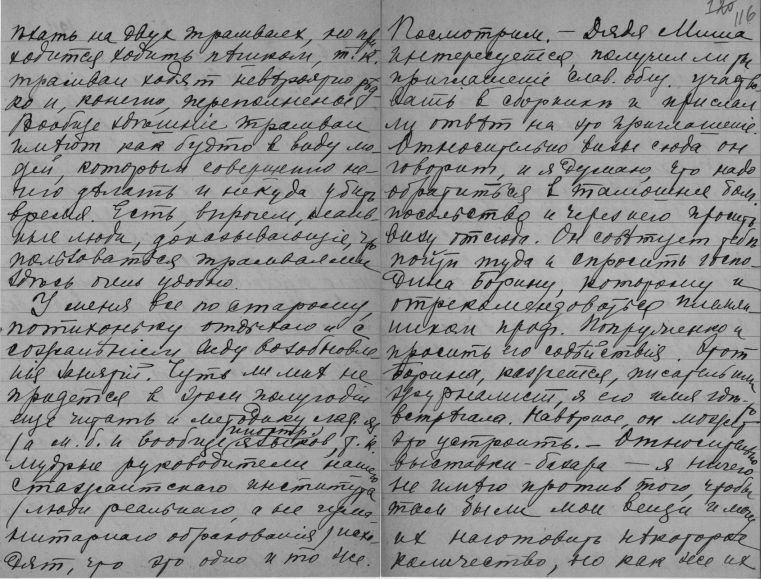 ѣхать на двух трамваях, но при
ходится ходить пѣшком, т.к.
трамваи ходят невѣроятно рѣд
ко и, конечно, переполненные.
Вообще здѣшніе трамваи
имѣют как будто в виду лю
дей, которым совершенно не
чего дѣлать и некуда убить
время. Есть, впрочем,
ные люди, доказывающіе, что
пользоваться трамваями
здѣсь очень удобно.
У меня все по старому,
потихоньку отдыхаю и с
сожалѣніем жду возобновле
нія занятій. Чуть ли мнѣ не
придется в этом полугодіи
еще читать и методику лат. яз.
иностр.
(а м. б. и вообще языков, т. к.
мудрые руководители нашего
института
(люди реальнаго, а не гума
нитарнаго образованія) нахо
дят, что это одно и то же.
116
Посмотрим. – Дядя Миша
интересуется, получил ли ты
приглашеніе слав. общ. участво
вать в сборникѣ и прислал
ли отвѣт на это приглашеніе.
Относительно визы сюда он
говорит, и я думаю, что надо
обратиться в тамошнее болг.
посольство и через него просить
визу отсюда. Он совѣтует тебѣ
пойти туда и спросить госпо
дина Борину, которому и
отрекомендоваться племян
ником проф. Попруженко и
просить его содѣйствія. Этот
Борина, кажется, писатель или
журналист, я его имя гдѣ-то
встрѣчала. Навѣрное, он может
это устроить. – Относительно
выставки-базара – я ничего
не имѣю против того, чтобы
там были мои вещи и могу
их наготовить нѣкоторое
количество, но как же их